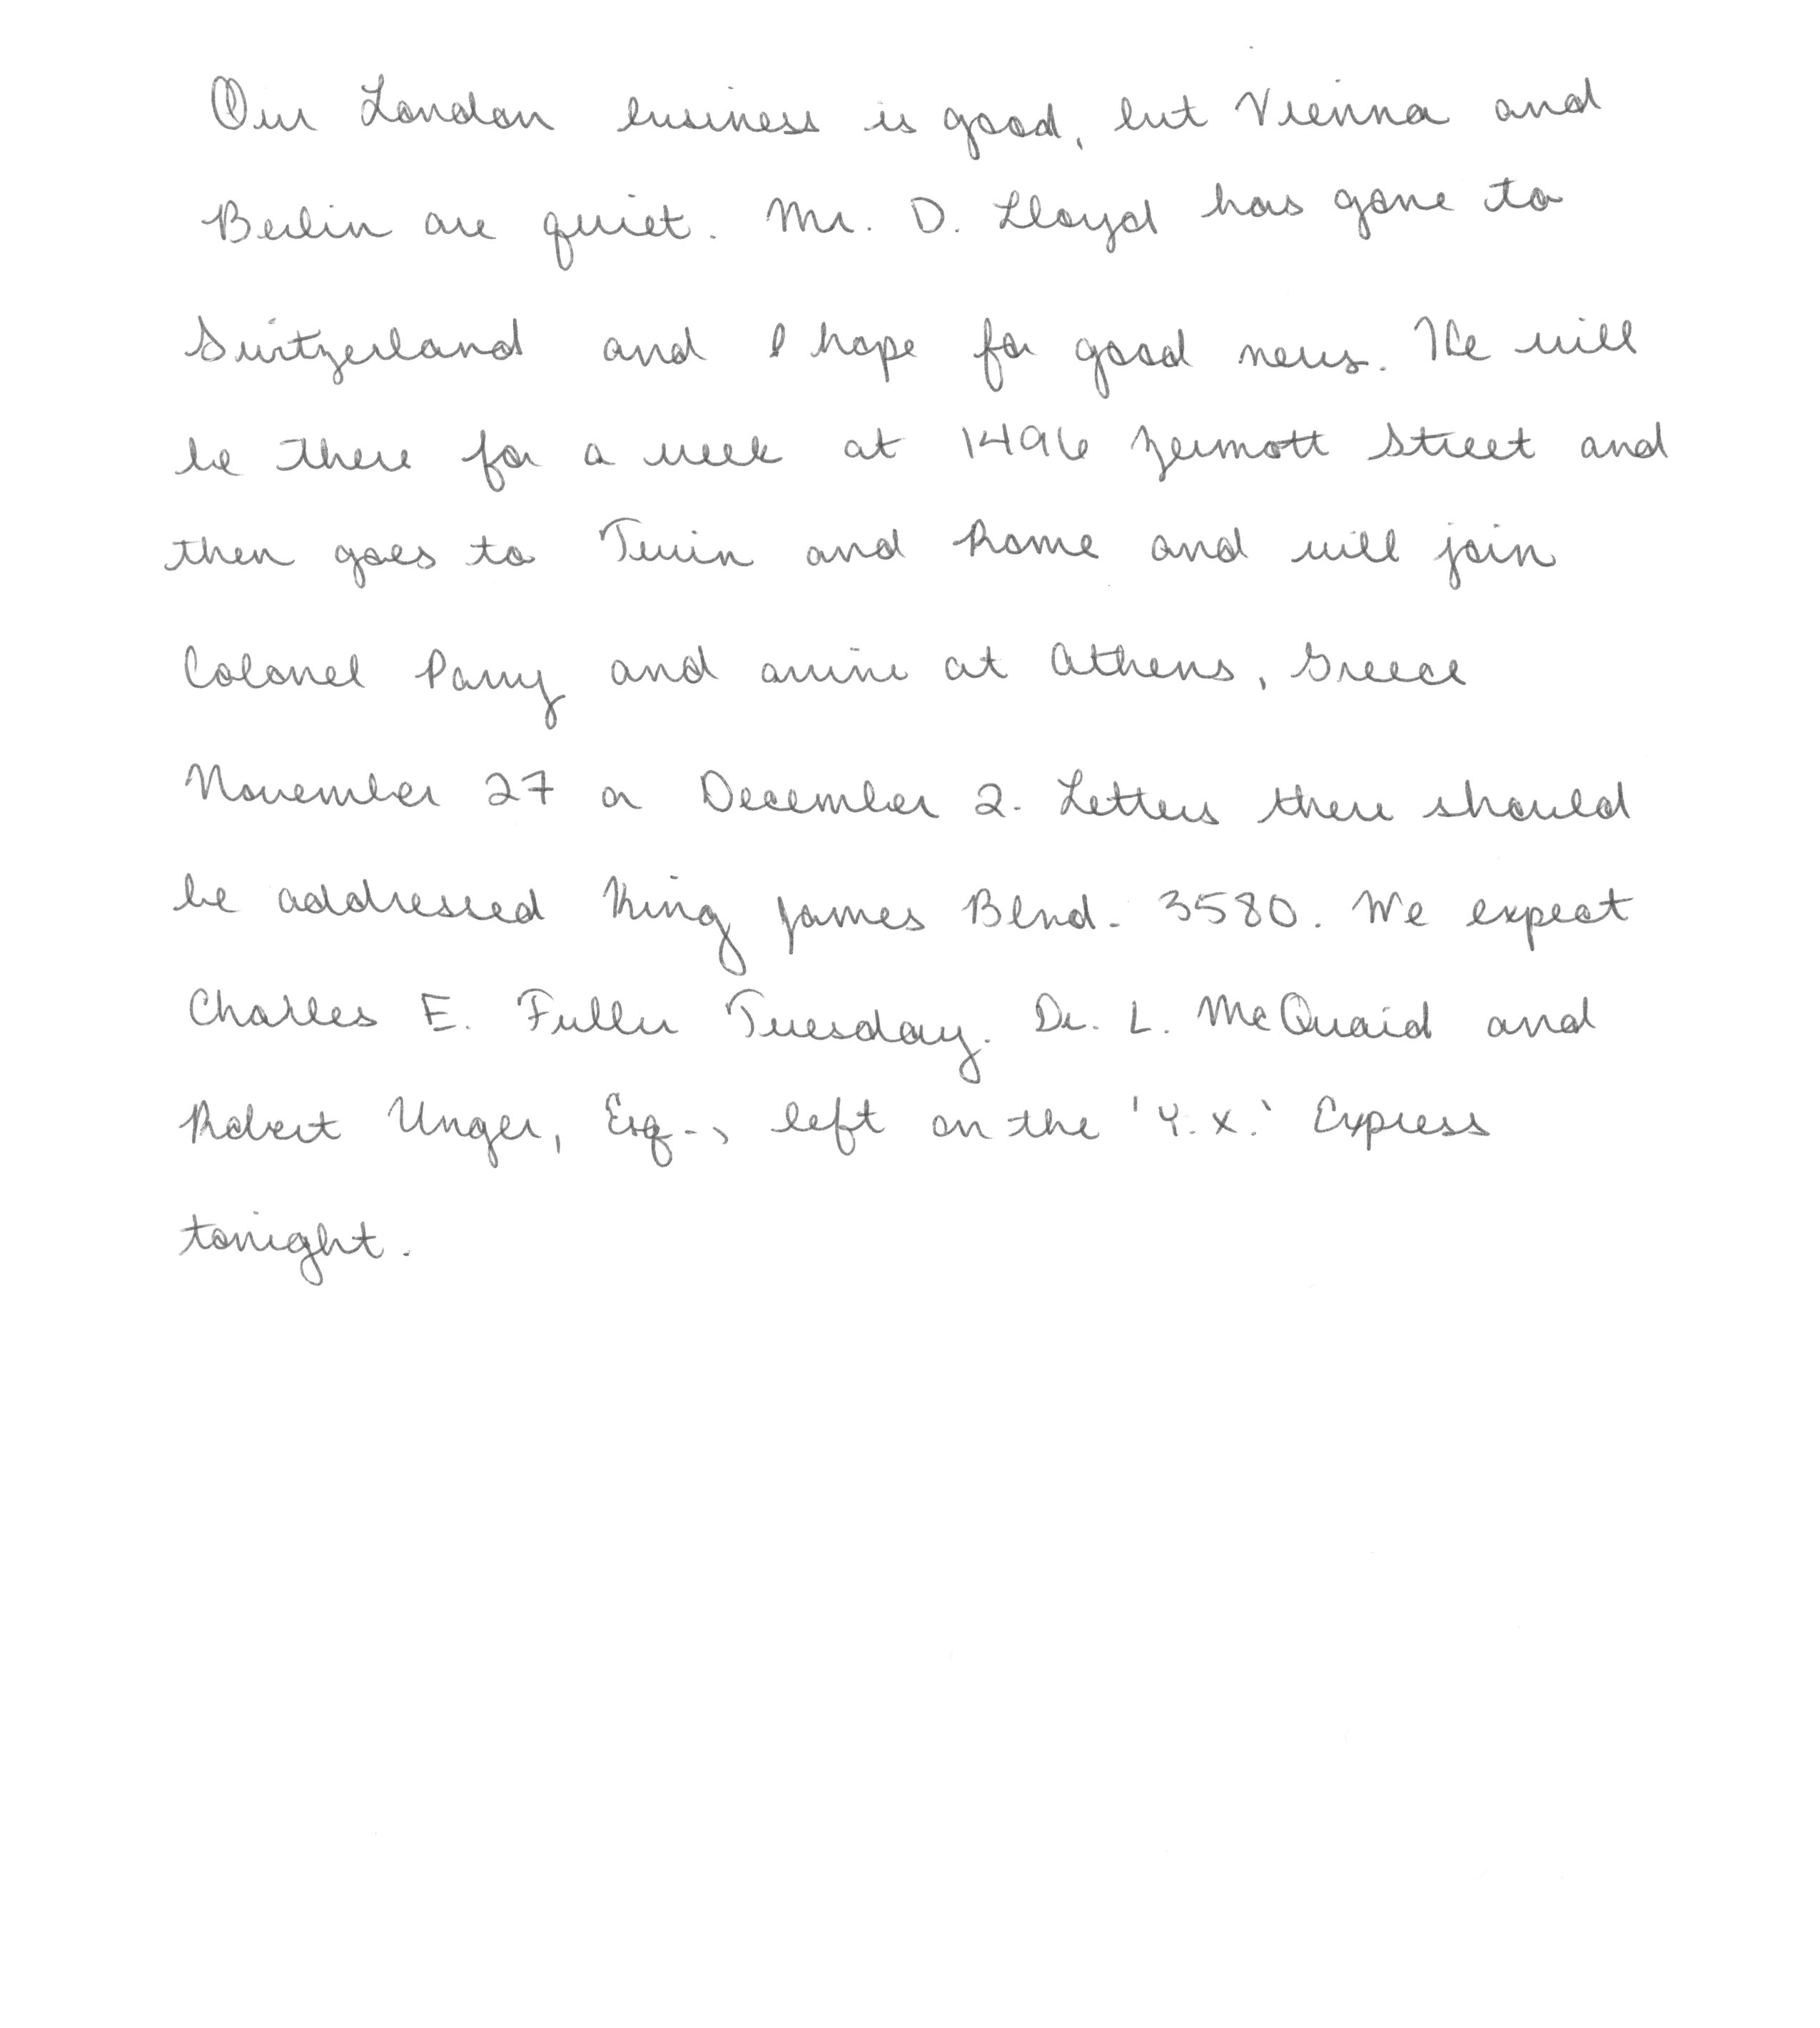 Our London business is good, but Vienna and
Berlin are quiet. Mr. D. Lloyd has gone to
Switzerland and I hope for good news. He will
be there for a week at 1496 Zermott Street and
then goes to Turin and Rome and will join
Colonel Parry and arrive at Athens, Greece
November 27 or December 2. Letters there should
be addressed King James Blvd. 3580. We expect
Charles E. Fuller Tuesday. Dr. L. McQuaid and
Robert Unger, Esq., left on the 'Y.X.' Express
tonight.